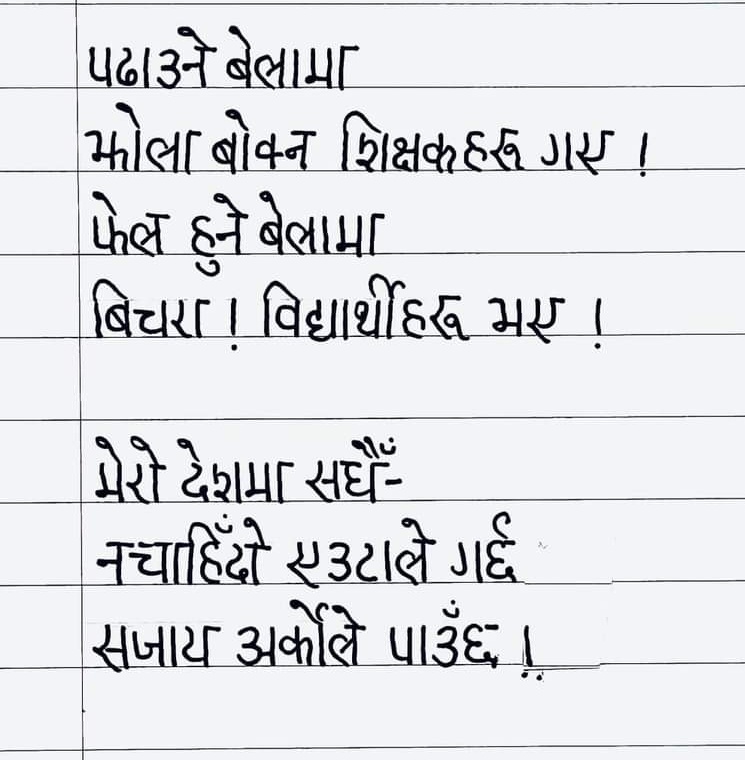 पढाउने बेलामा
झोला बोक्न शिक्षकहरू गए !
फेल हुने बेलामा
बिचरा ! विद्यार्थीहरू भए !
मेरो देशमा सधैँ-
नचाहिँदो एउटाले गर्छ
सजाय अर्कोले पाउँछ !